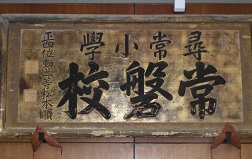 尋常小學
常磐校
正四位勲二等松本順